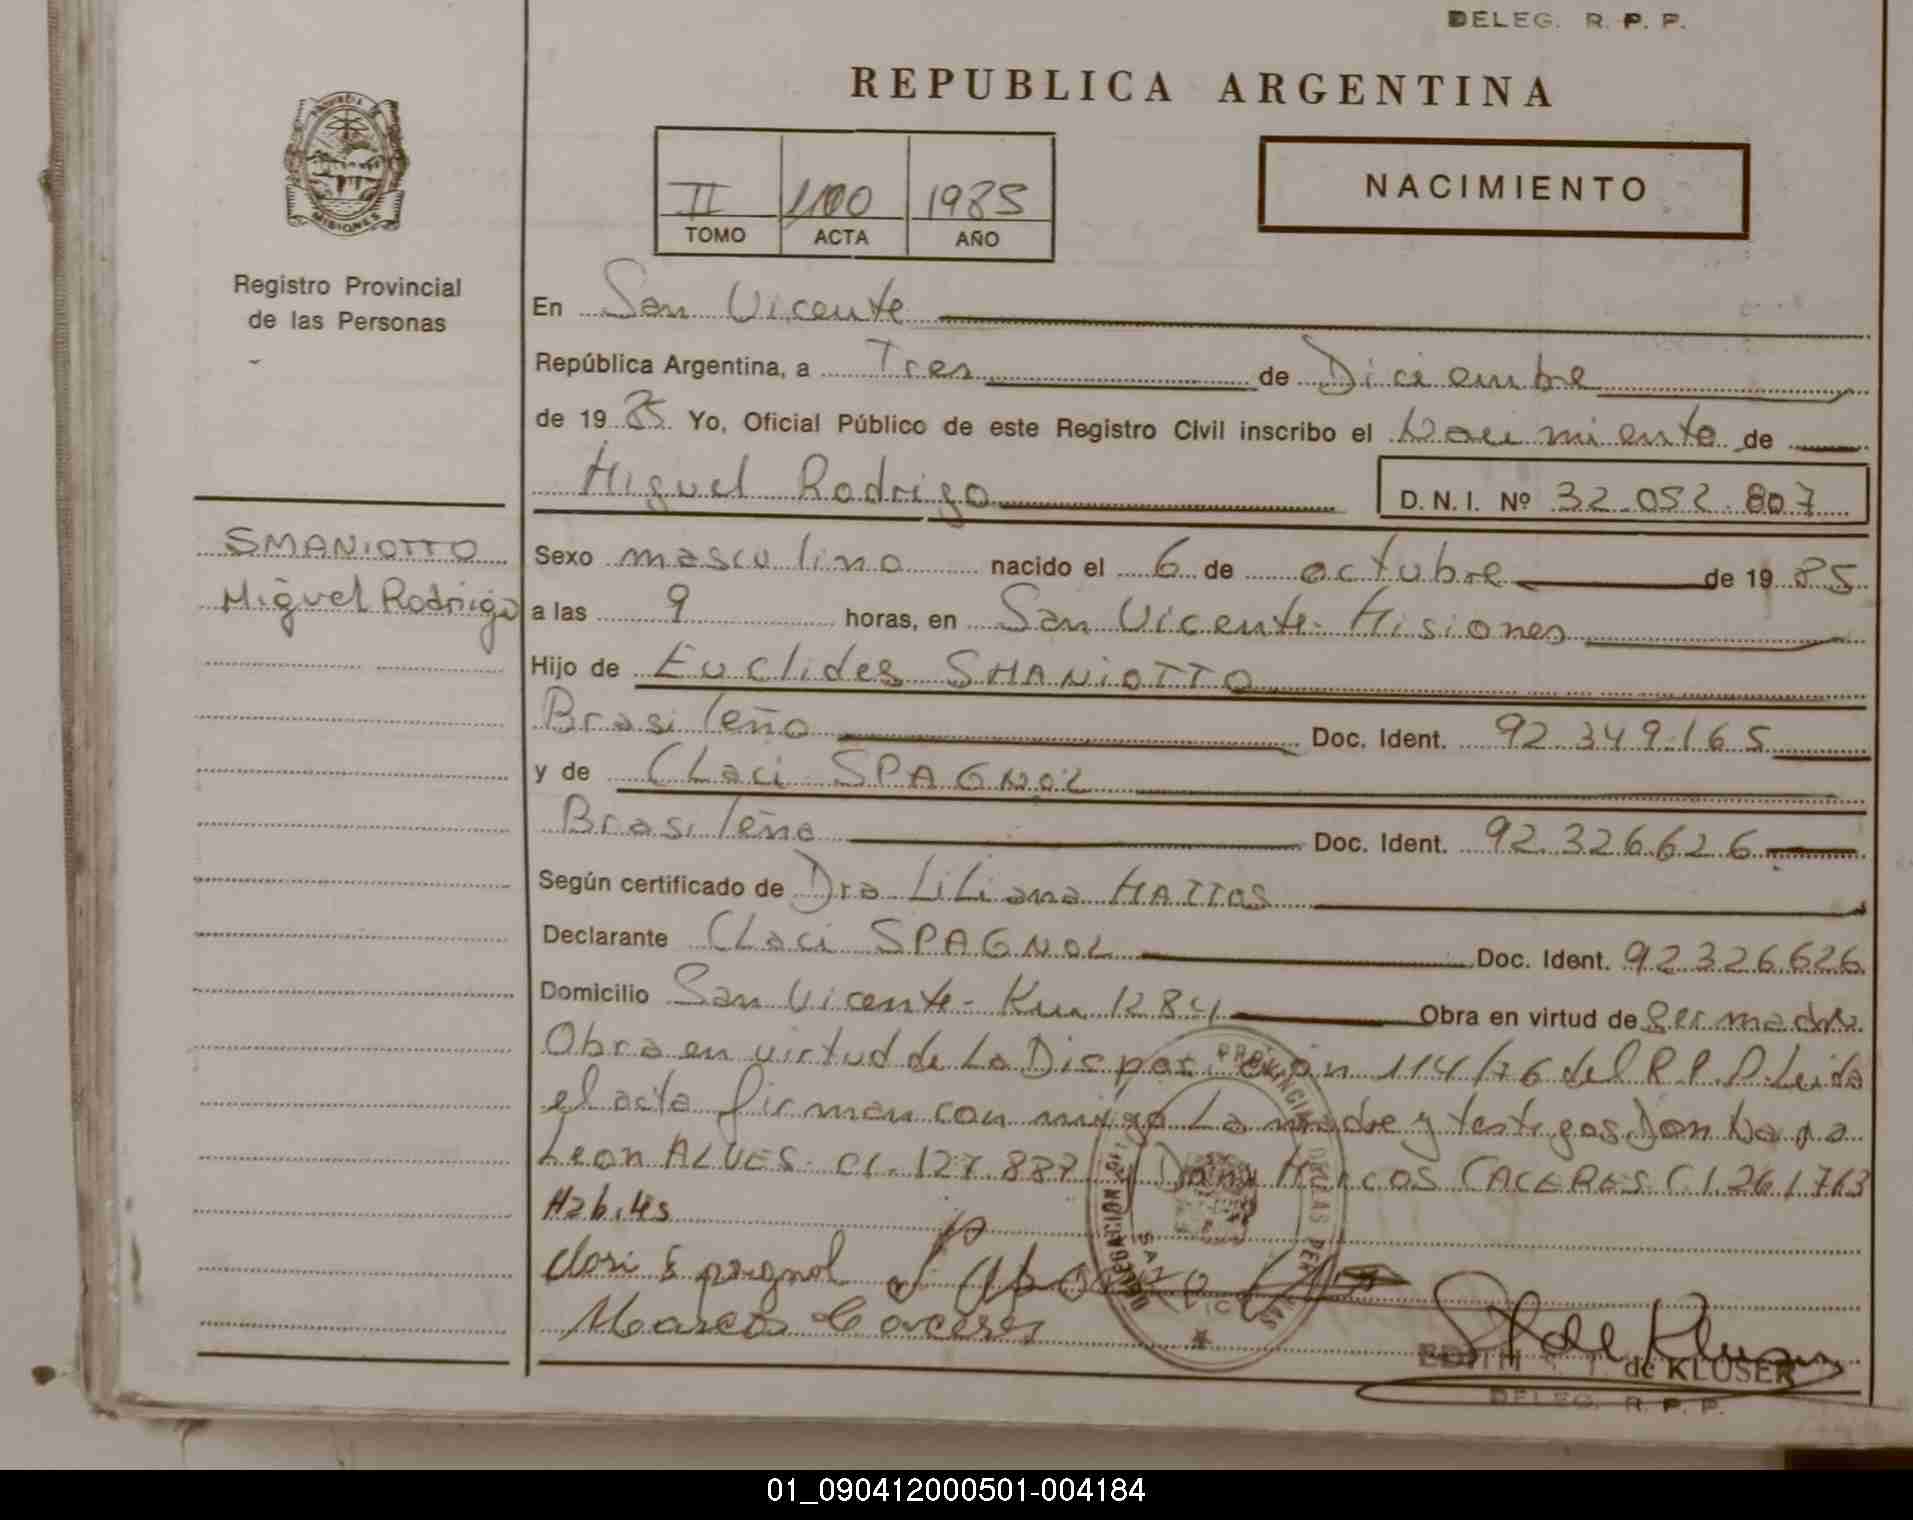 DELEG. R. P. P.
REPUBLICA ARGENTINA
NACIMIENTO
II 1100 1985
TOMO ACTA AÑO
Registro Provincial
de las Personas
En San Vicente
República Argentina, a Tres de Diciembre
de 1985 Yo, Oficial Público de este Registro Civil inscribo el Nacimiento de
Miguel Rodrigo D.N.I. Nº 32.052.807
SMANIOTTO
Miguel Rodrigo
Sexo masculino nacido el 6 de octubre de 1985
a las 9 horas, en San Vicente- Misiones
Hijo de Euclides SMANIOTTO
Brasileño Doc. Ident. 92.349.165
y de CLaci SPAGNOL
Brasileña Doc. Ident. 92.326.626
Según certificado de Dra LiLiana MATTOS
Declarante CLaci SPAGNOL Doc. Ident. 92.326.626
Domicilio San Vicente- Km 1284 Obra en virtud de Ser madre
Obra en virtud de La Disposición 114/76 del R.P.P. Leída
el acta firman conmigo La madre y testigos Don
Leon ALVES- CI. 127.887 y Don Marcos CACERES CI. 261.763
Habiles
Spagnol
Marcos Caceres
PROVINCIAL DE LAS PERSONAS
DELEGACION
SAN VICENTE
EDITH S. T. de KLUSER
DELEG. R. P. P.
MISIONES
01_090412000501-004184